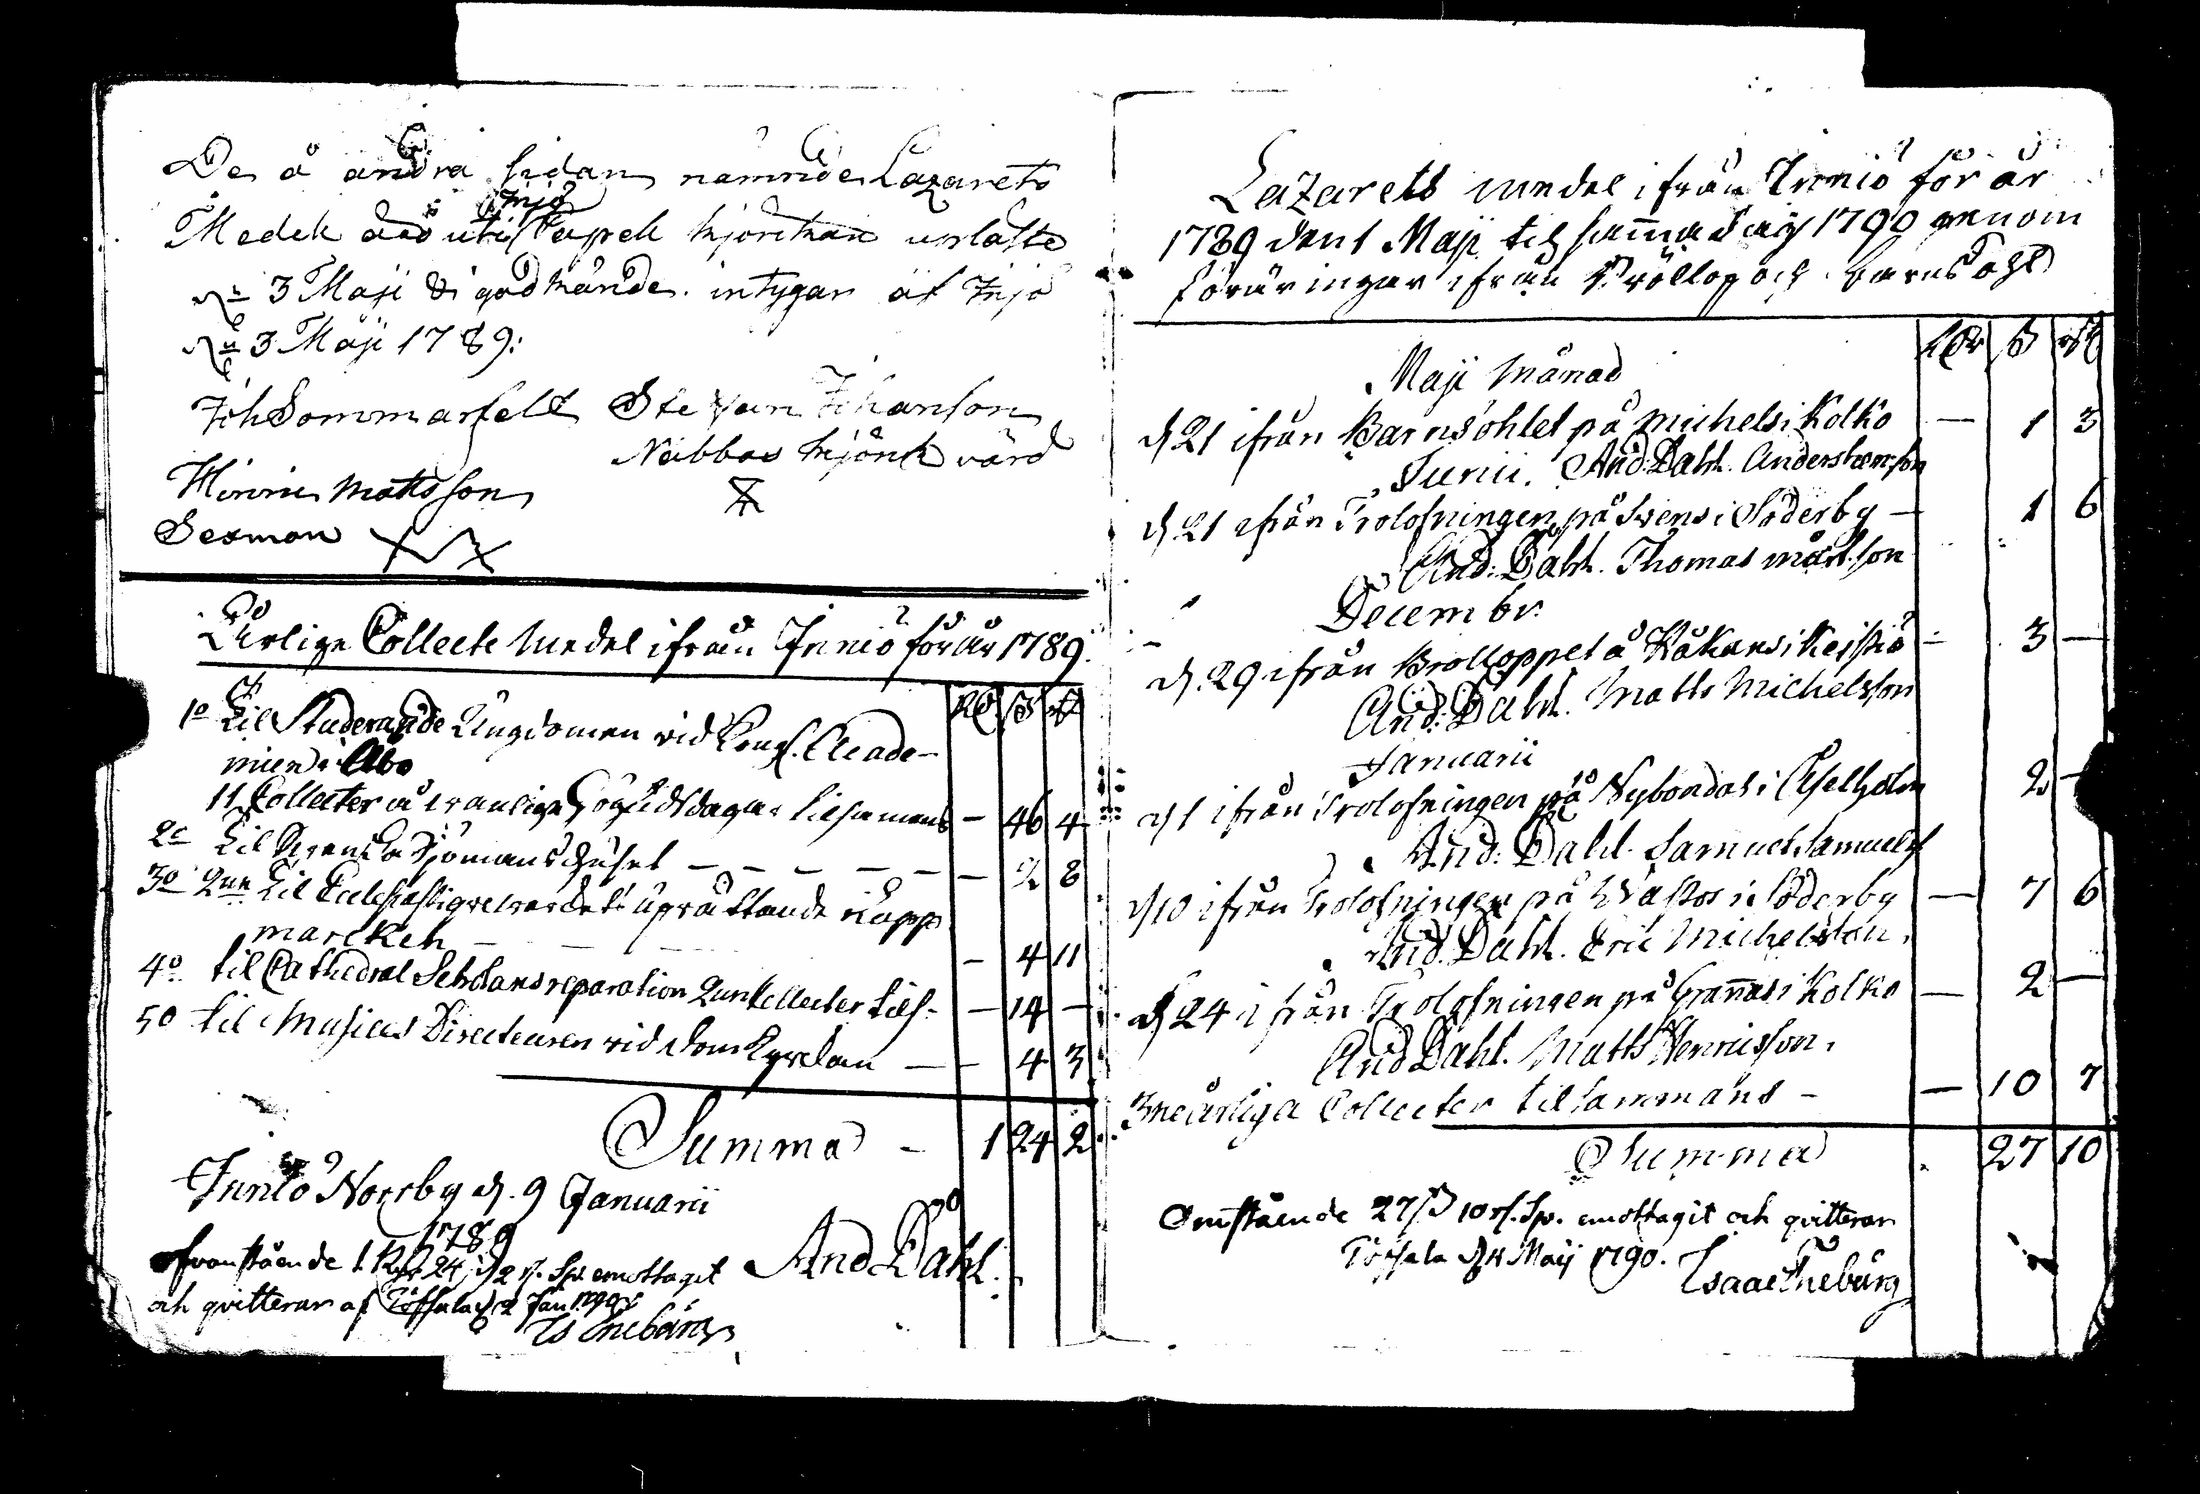 De å andra sidan nämnde Lazarets
Injö
Medel äro uti Capell kjörckan upläste
dn 3 Maji & godkände. intygar af Injö
dn 3 Maji 1789:
Joh Sommarfelt Stefan Johanson
Näbbos kjörck värd
Hinric Mattsson
Sexman
Årlige Collecte Medel ifrån Iniö för år 1789.
Rd ß rs
1o Til Studerande Ungdomen vid Kongl. Acade-
mien i Åbo
11 Collecter å vanliga Högtidsdagar tilsamans — 46 4
2o Til Svenska Sjömans huset — — — — — 2 8
3o 2ne Til Ecclesiastique värdets uprättande i Lapp
marcken — — — — 4 11
4o til Cathedral Scholans reparation 2ne Collecter tils. — 14 —
5o til Musices Directeuren vid domkyrckan — — 4 3
Summa — 1 24 2
Iniö Norrby d. 9 Januarii
1789
And. Dahl.
Ofvanstående 1 Rdr 24 ß 2 rs. Sp. emottagit
och qvitteras af Töfsala d 2 Jan 1790
Is Thebürg
Lazarets medel ifrån Iniö för år
1789 den 1 Maji til samma dag 1790 genom
föräringar ifrån Bröllop och barnsöhl
Rdr ß rs
Maji Månad
d 21 ifrån Barnsöhlet på Michels i Kolko — 1 3
Junii. And. Dahl. Anders
d 21 ifrån Trolofningen på Svens i Söderby — 1 6
And: Dahl. Thomas Mattsson
Decembr.
d. 29 ifrån Brölloppet å Håkans i Keistiö — 3 —
And: Dahl. Matts Michelsson
Januarii
d 1 ifrån Trolofningen på Nybondas i Åselholm 2 —
And: Dahl. Samuel Samuels
d 10 ifrån Trolofningen på i Söderby — 7 6
And. Dahl. Eric Michelsson.
d 24 ifrån Trolofningen på Grannas i Kolko — 2 —
And Dahl. Matts Henricsson.
3ne årliga Collecter tilsammans — — 10 7
Summa 27 10
Omstående 27 ß 10 rs. Sp. emottagit och qvitteras
Töfsala d 4 Maij 1790. Isaac Thebürg